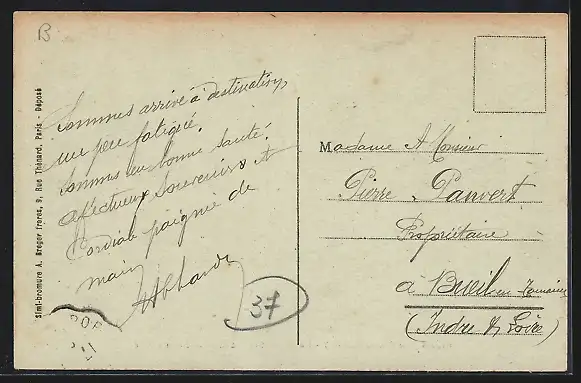 B
Simi-bromure A. Breger freres, 9, Rue Thénard, Paris - Déposé
Sommes arrivé à destination,
un peu fatigué.
Sommes en bonne santé.
Affectueux Souvenirs et
Cordiale poignée de
main
37
Madame et Monsieur
Pierre Panvert
Propriétaire
à Bueil en Touraine
(Indre & Loire)